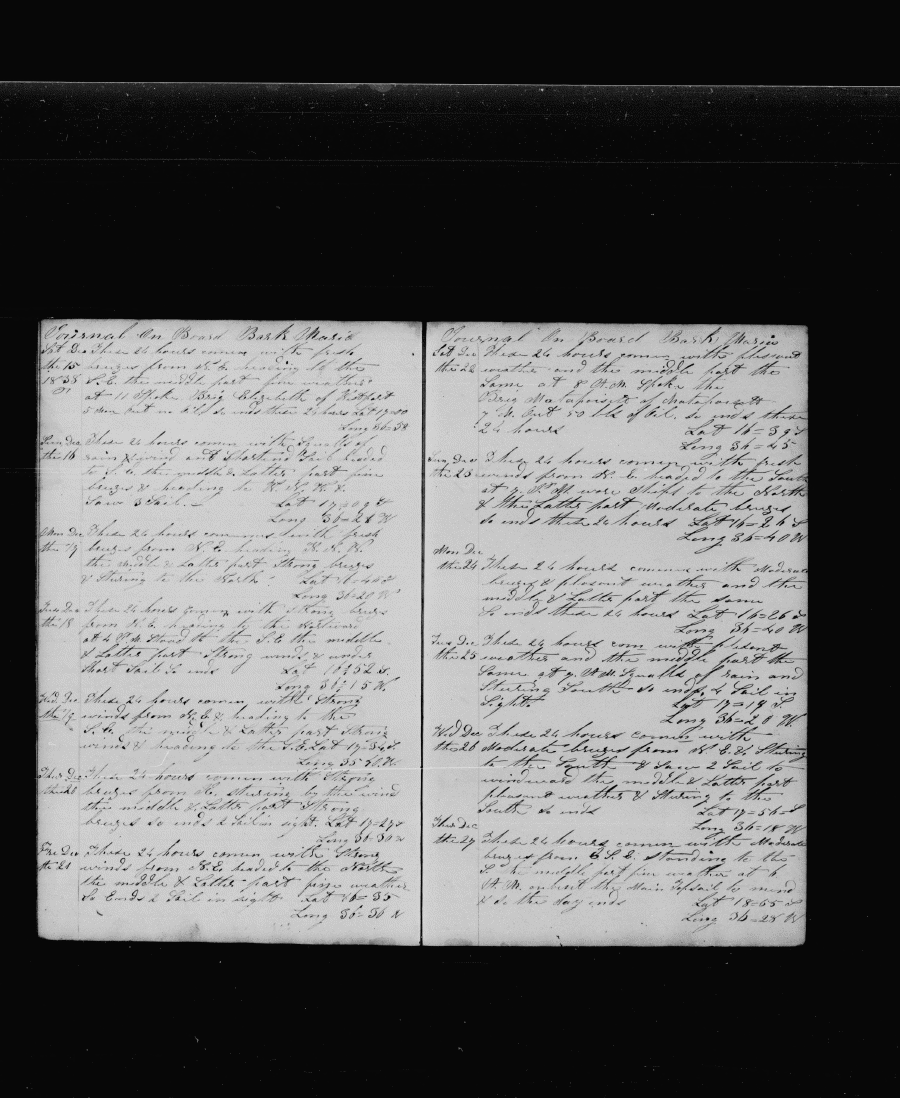 Journal On Board Bark Maria
Sat Dec These 24 hours comen with fresh
the 15 bruzes from N. E. heading to the
1838 S. E. the middle part fine weather
at 11 Spoke Brig Elizabeth of Westport
5 mon out no oil so ends these 24 hours Lat 17=00
Long 36=38
Sun Dec These 24 hours comen with Squalls of
the 16 rain & wind and Short no Sail headed
to S. E. the middle & Latter part fine
bruzes & heading to
Saw 3 Sail. Lat 17=09 S
Long 36=26 W
Mon Dec These 24 hours with fresh
the 17 bruzes from N. E. heading N. N. W.
the middle & Latter part Strong bruzes
& Stering to the North Lat
Long 36=20 W
Tues Dec These 24 hours comen with Strong bruzes
the 18 from N. E. heading to the
at 4 P. M. Stood to the S. E. the middle
& Latter part Strong winds & under
Short Sail So ends Lat 16=52 S.
Long 36=15 W.
Wed. Dec These 24 hours comen with Strong
the 19 winds from N. E. & heading to the
S. E. the middle & Latter part Strong
winds & heading to the S. E. Lat 17=34 S
Long 35=50 W.
Thurs Dec These 24 hours comen with Strong
the 20 bruzes from stering by the wind
the middle & Latter part Strong
bruzes So ends 2 Sail in sight. Lat 17=27 S
Long 36=30 W
Fri Dec These 24 hours comen with Strong
the 21 winds from N. E. headed to the North
the middle & Latter part fine weather
So Ends 2 Sail in sight Lat 16=35
Long 36=36 W
Journal On Board Bark Maria
Sat Dec These 24 hours comen with plesant
the 22 weather and the middle part the
Same at 8 A. M. Spoke the
Brig Matapoisett of Matapoisett
7 M. Out 50 bbls of Oil. So ends these
24 hours Lat 16=39 S
Long 36=45
Sun Dec These 24 hours comen with fresh
the 23 winds from N. E. headed to the South
at 7 P. M wore Ships to the North
& the Latter part Moderate bruzes
So ends these 24 hours Lat 16=26 S
Long 36=40 W
Mon Dec
the 24 These 24 hours comen with Moderate
bruzes & plesant weather and the
middle & Latter part the same
So ends these 24 hours Lat 16=26 S
Long 36=40 W
Tues Dec These 24 hours com with plesant
the 25 weather and the middle part the
Same at 7 A. M. Squalls of rain and
Stering South So ends 4 Sail in
Sight Lat 17=19 S.
Long 36=20 W.
Wed Dec These 24 hours comen with
the 26 Moderate bruzes from N. E. & Stering
to the South & Saw 2 Sail to
windward the middle & Latter part
plesant weather & Stering to the
South So ends Lat 17=56 S
Long 36=18 W
Thurs Dec
the 27 These 24 hours comen with Moderate
bruzes from E. S. E. standing to the
S. the middle part fine weather at 6
A. M. unbent the Main Topsail to mend
& So the day ends Lat 18=55 S
Long 36=28 W